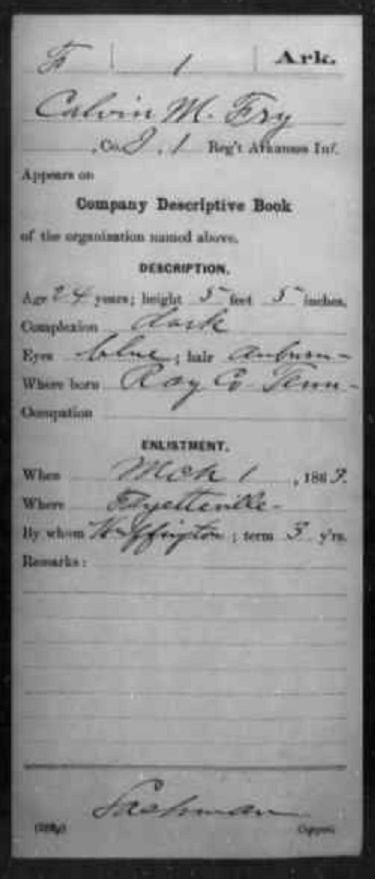 F | 1 | Ark.
Calvin M. Fry
, Co. I, 1 Reg't Arkansas Inf.
Appears on
Company Descriptive Book
of the organization named above.
DESCRIPTION.
Age 24 years; height 5 feet 5 inches.
Complexion dark
Eyes blue; hair Auburn
Where born Ray Co Tenn
Occupation
ENLISTMENT.
When Mch 1, 1863.
Where Fayetteville
By whom Huffington; term 3 y'rs.
Remarks:
Lashman
Copyist.